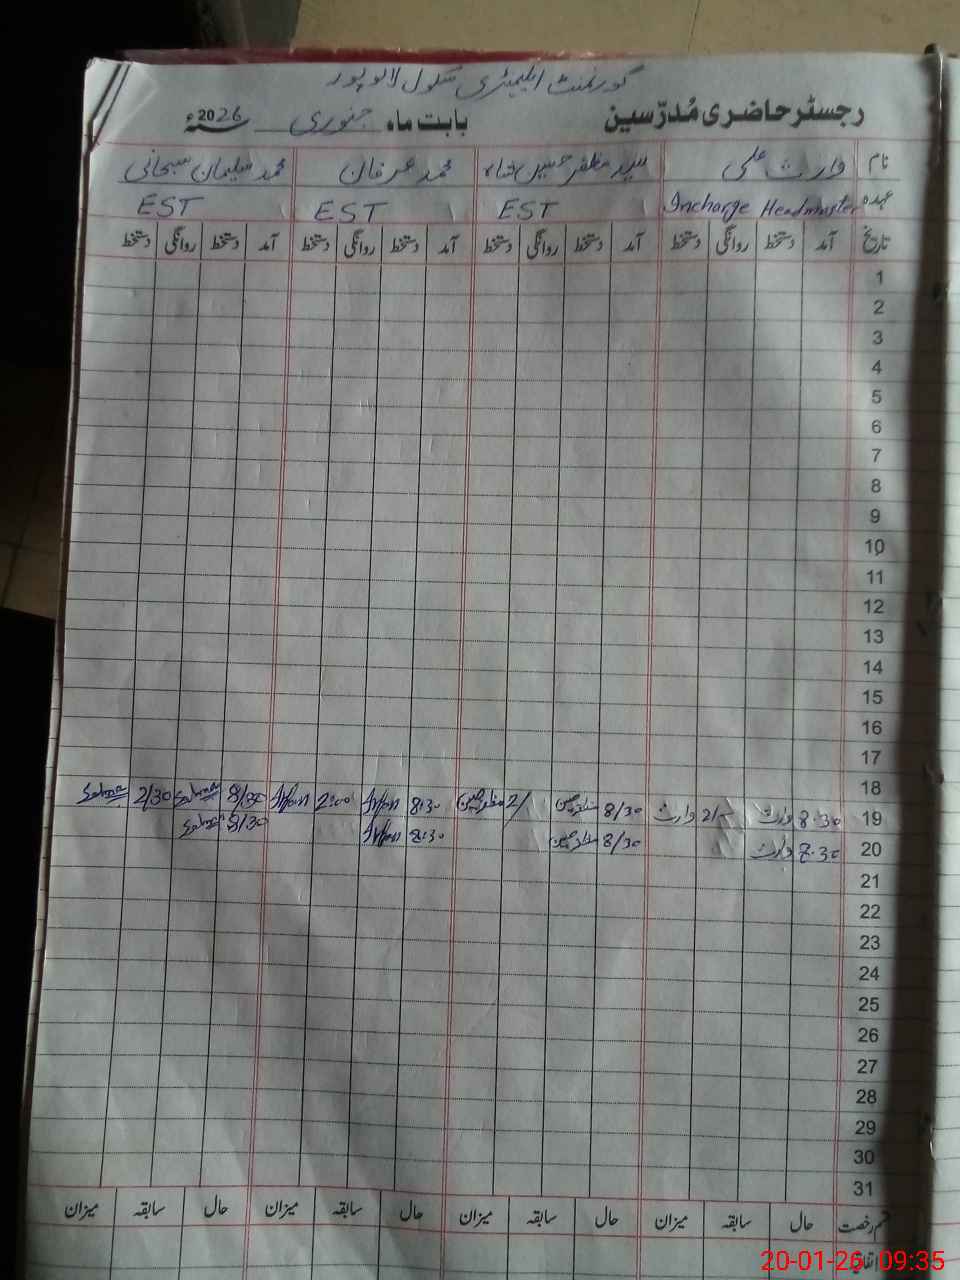 گورنمنٹ ایلیمنٹری سکول لالو پور
رجسٹر حاضری مُدرّسین بابت ماہ جنوری سنہ 2026ء
نام وارث علی سید مظفر حسین شاہ محمد عرفان محمد سلیمان سبحانی
عہدہ Incharge Headmaster EST EST EST
تاریخ آمد دستخط روانگی دستخط آمد دستخط روانگی دستخط آمد دستخط روانگی دستخط آمد دستخط روانگی دستخط
1
2
3
4
5
6
7
8
9
10
11
12
13
14
15
16
17
18
19 8.30 وارث 2/- وارث 8/30 مظفر حسین 2/ مظفر حسین 8:30 Irfan 2:00 Irfan 8/30 2/30
20 8.30 وارث 8/30 مظفر حسین 8:30 Irfan 8/30
21
22
23
24
25
26
27
28
29
30
31
قسم رخصت حال سابقہ میزان حال سابقہ میزان حال سابقہ میزان حال سابقہ میزان
20-01-26 09:35